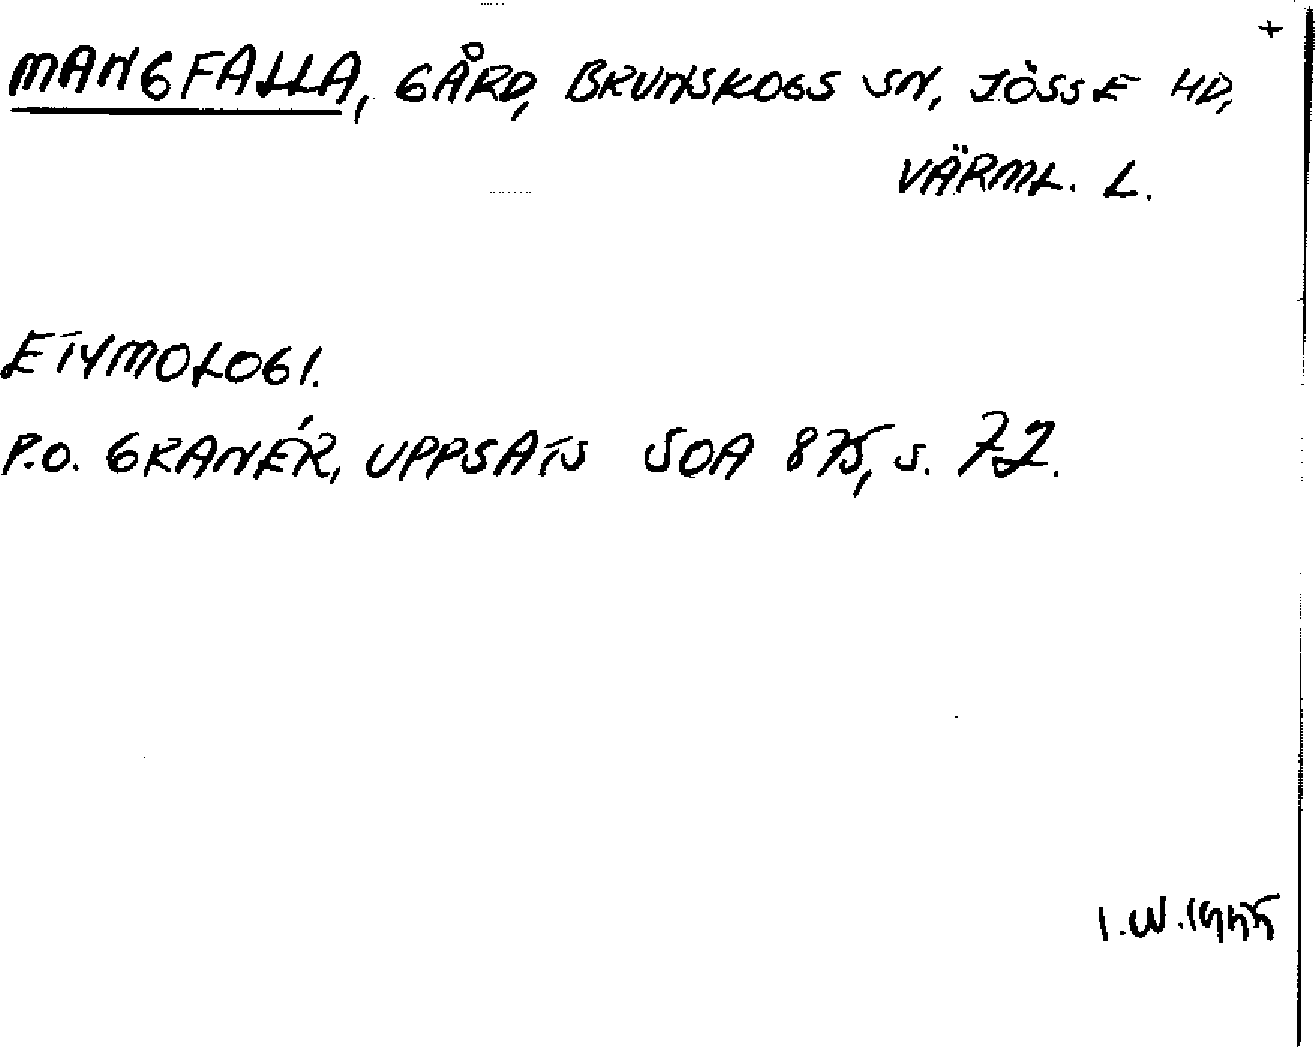 +
MANGFALLA, GÅRD, BRUNSKOGS SN, JÖSSE HD,
VÄRML. L.
ETYMOLOGI.
P.O. GRANÉR, UPPSATS SOA 875, S. 72.
I.W. 1955